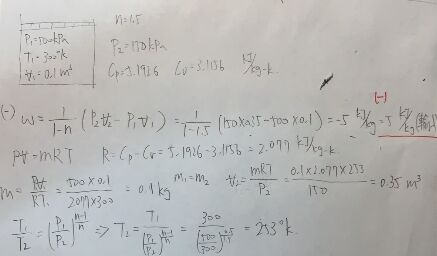 n=1.5
P₁=500kPa
T₁=300°k
V₁=0.1 m³
P₂=150kPa
Cp=5.1926 Cv=3.1156 kJ/kg-k
(-) w = 1/(1-n) (P₂V₂-P₁V₁) = 1/(1-1.5) (150×0.35-500×0.1) = -5 kJ/kg = 5 kJ/kg
(-)
PV=mRT R=Cp-Cv=5.1926-3.1156=2.077 kJ/kg-k
m = P₁V₁/RT₁ = 500×0.1/2.077×300 = 0.1 kg m₁=m₂ V₂ = mRT/P₂ = 0.1×2.077×253/150 = 0.35 m³
T₁/T₂ = (P₁/P₂)^((n-1)/n) => T₂ = T₁/(P₁/P₂)^((n-1)/n) = 300/(500/150)^(0.5/1.5) = 253°k